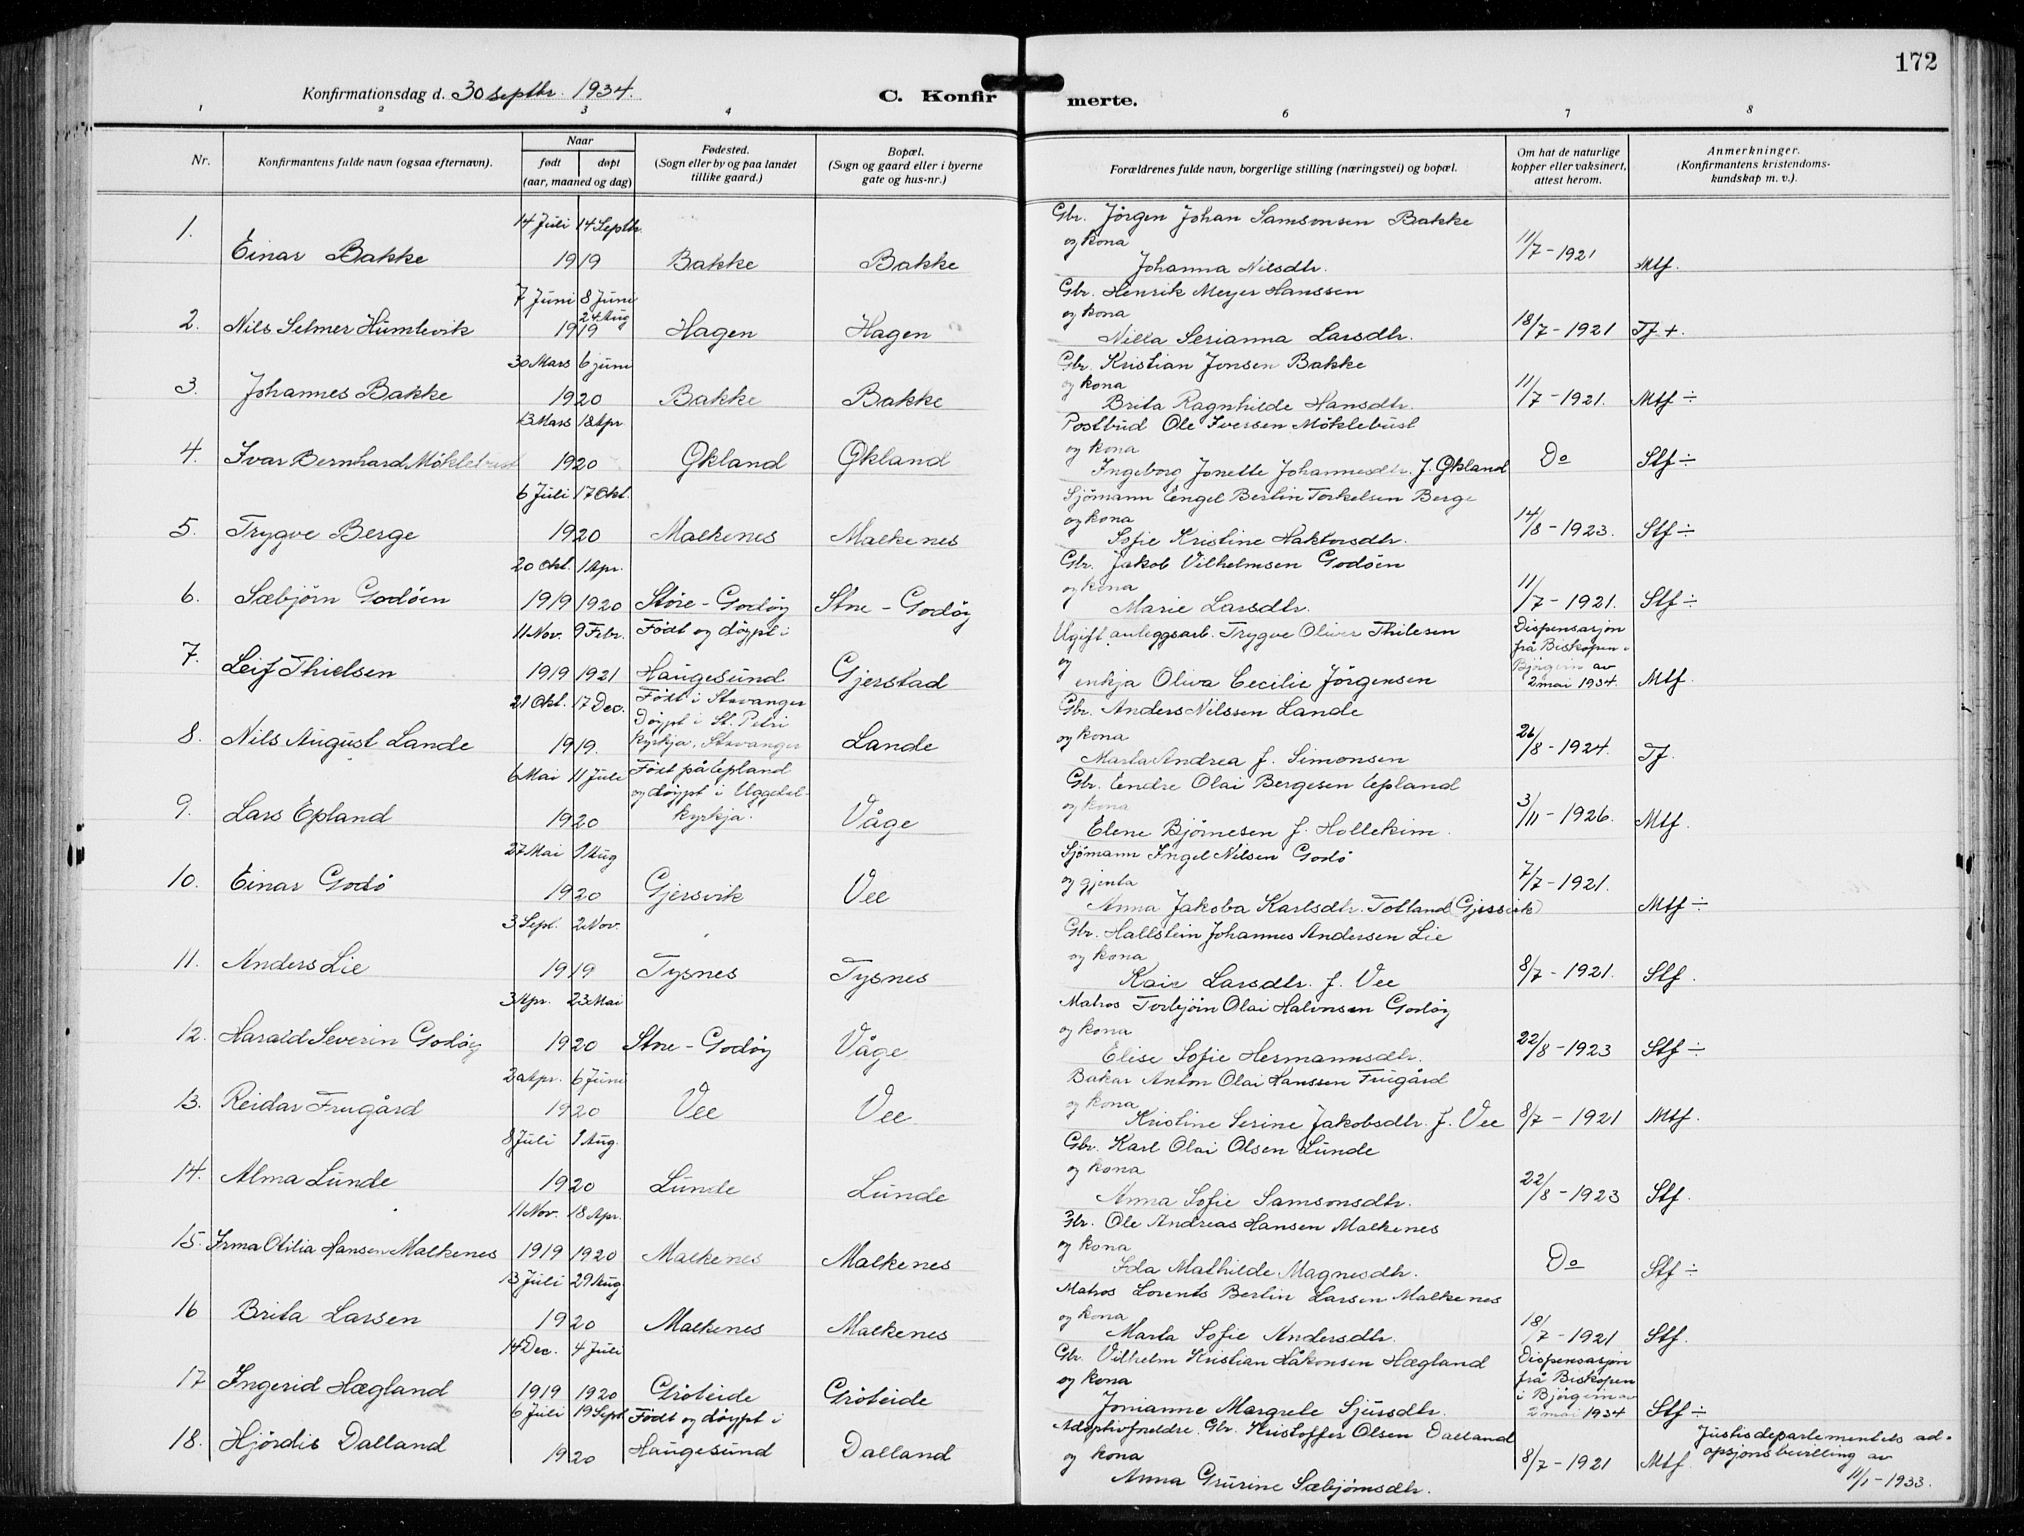 172
Konfirmationsdag d. 30 septbr. 1934.
C. Konfirmerte.
1 2 3 4 6 7 8
Nr.
Konfirmantens fulde navn (ogsaa efternavn).
Naar
født døpt
(aar, maaned og dag)
Fødested.
(Sogn eller by og paa landet
tillike gaard.)
Bopæl.
(Sogn og gaard eller i byerne
gate og hus-nr.)
Forældrenes fulde navn, borgerlige stilling (næringsvei) og bopæl.
Om hat de naturlige
kopper eller vaksinert,
attest herom.
Anmerkninger.
(Konfirmantens kristendoms-
kundskap m. v.).
14 Juli 14 Septbr. Gbr. Jörgen Johan Samsonsen Bakke
1. Einar Bakke 1919 Bakke Bakke og kona 11/7-1921 Mtf.
Johanna Nilsdtr.
7 Juni 8 Juni Gbr. Henrik Meyer Hanssen
24 Aug
2. Nils Selmer Humlevik 1919 Hagen Hagen og kona 18/7-1921 Tf +.
Nilla Serianna Larsdtr.
30 Mars 6 juni Gbr. Kristian Jonsen Bakke
3. Johannes Bakke 1920 Bakke Bakke og kona 11/7-1921. Mtf ÷
Brita Ragnhilde Hansdtr.
13 Mars 18 Apr. Postbud Ole Iversen Möklebust
4. Ivar Bernhard Möklebust 1920 Økland Økland og kona Do Stf ÷
Ingeborg Jonette Johannesdtr. f. Økland
6 Juli 17 Okt. Sjömann Engel Berlin Torkelsen Berge
5. Trygve Berge 1920 Malkenes Malkenes og kona 14/8-1923. Stf ÷
Sofie Kristine Haktorsdtr.
20 Okt. 1 Apr. Gbr. Jakob Vilhelmsen Godöen
6. Sæbjörn Godöen 1919 1920 Store-Godöy Store-Godöy og kona 11/7-1921. Stf ÷
Marie Larsdtr.
11 Nov. 9 Febr. Födt og döypt i Ugift anleggsarb. Trygve Oliver Thilesen Dispensasjon
frå Biskopen i
7. Leif Thielsen 1919 1921 Haugesund Gjerstad og Björgvin av
enkja Oliva Cecilie Jörgensen 2 mai 1934. Mtf.
21 Okt. 17 Dec. Födt i Stavanger Gbr. Anders Nilssen Lande
Döypt i St. Petri
8. Nils August Lande 1919. kyrkja, Stavanger Lande og kona 26/8-1924. Tf.
Marta Andrea f. Simonsen
6 Mai 11 Juli Födt på Epland Gbr. Endre Olai Bergesen Epland
og döypt i Uggdal-
9. Lars Epland 1920 kyrkja. Våge og kona 3/11-1926. Mtf.
Elene Björnesen f. Hollekim.
27 Mai 1 Aug Sjömann Ingel Nilsen Godö
10. Einar Godö 1920 Gjersvik Vee og gjenta 7/7-1921.
Anna Jakoba Karlsdtr. Totland (Gjersvik) Mtf ÷
3 Sept. 2 Nov. Gbr. Hallstein Johannes Andersen Lie
11. Anders Lie 1919 Tysnes Tysnes og kona 8/7-1921. Stf.
Kari Larsdtr. f. Vee
3 Apr. 23 Mai Matros Torbjörn Olai Halvorsen Godöy
12. Harald Severin Godöy 1920 Store-Godöy Våge og kona 22/8-1923 Stf ÷
Elise Sofie Hermannsdtr.
2 Apr. 6 Juni Bakar Anton Olai Hanssen Frugård
13. Reidar Frugård 1920 Vee Vee og kona
Kristine Serine Jakobsdtr. f. Vee 8/7-1921 Mtf.
8 Juli 1 Aug. Gbr. Karl Olai Olsen Lunde
14. Alma Lunde 1920 Lunde Lunde og kona 22/8-1923 Stf.
Anna Sofie Samsonsdtr.
11 Nov. 18 Apr. Gbr. Ole Andreas Hansen Malkenes
15. Irma Otilia Hansen Malkenes 1919 1920 Malkenes Malkenes og kona Do Stf ÷
Ida Mathilde Magnesdtr.
13 Juli 29 Aug Matros Lorents Berlin Larsen Malkenes
16 Brita Larsen 1920 Malkenes Malkenes og kona 18/7-1921 Stf.
Marta Sofie Andersdtr.
14 Dec. 4 Juli Gbr. Vilhelm Kristian Håkonsen Hægland Dispensasjon
frå Biskopen
17 Ingerid Hægland 1919 1920 Gröteide Gröteide og kona i Björgvin av
Jonianne Margrete Sjursdtr. 2 mai 1934 Stf ÷
6 Juli 19 Sept. Födt og döypt i Adoptivforeldre. Gbr. Kristoffer Olsen Dalland Justisdepartementets ad-
18. Hjördis Dalland 1920 Haugesund Dalland og kona 8/7-1921 Mtf. opsjonsbevilling av
Anna Grurine Sæbjörnsdtr. 11/1-1933.